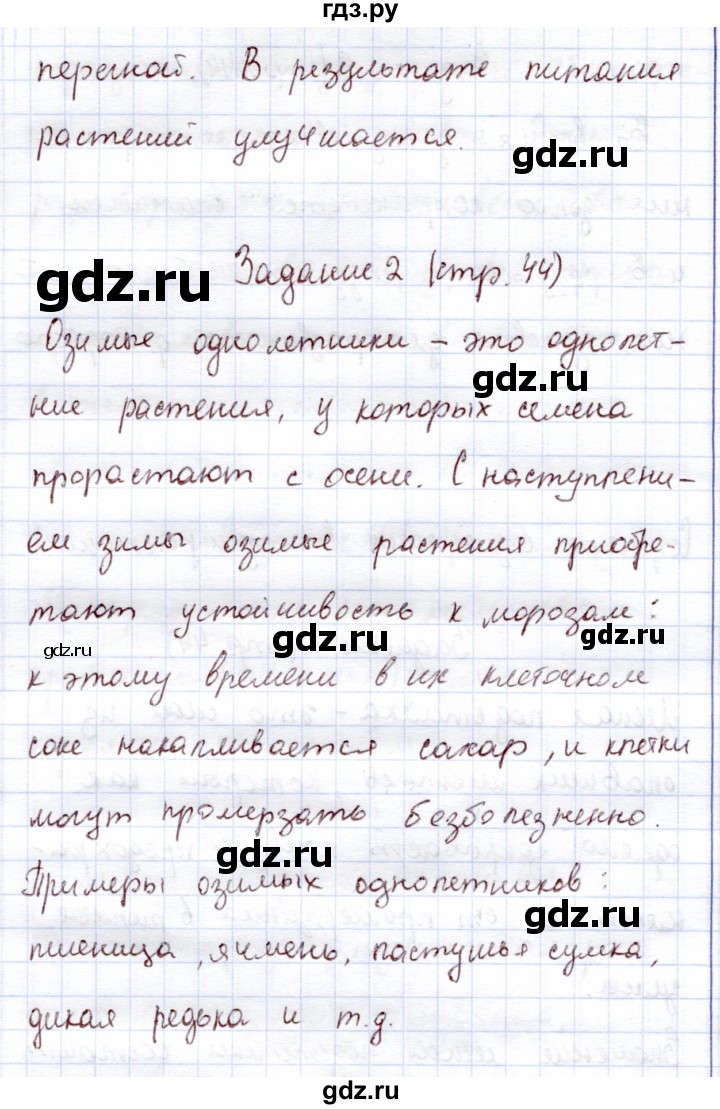 гдз.ру
перегной. В результате питания
растений улучшается.
gdz.ru
gdz.ru
Задание 2 (стр. 44)
Озимые однолетники – это однолет-
gdz.ru
ние растения, у которых семена
прорастают с осени. С наступлени-
gdz.ru
ем зимы озимые растения приобре-
тают устойчивость к морозам:
gdz.ru
gdz.ru
gdz.ru
к этому времени в их клеточном
соке накапливается сахар, и клетки
могут промерзать безболезненно.
gdz.ru
Примеры озимых однолетников:
gdz.ru
пшеница, ячмень, пастушья сумка,
дикая редька и т.д.
gdz.ru
gdz.ru